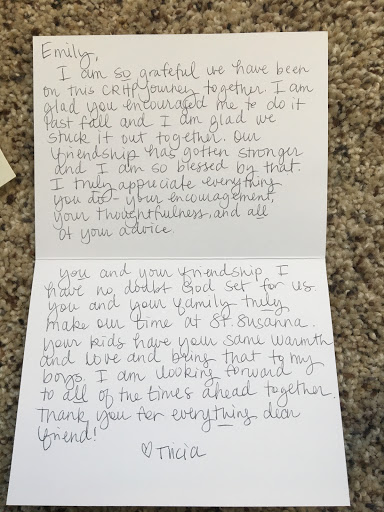 Emily,
I am so grateful we have been
on this CRHP journey together. I am
glad you encouraged me to do it
last fall and I am glad we
stuck it out together. Our
friendship has gotten stronger
and I am so blessed by that.
I truly appreciate everything
you do - your encouragement,
your thoughtfulness, and all
of your advice.
You and your friendship, I
have no doubt God set for us.
You and your family truly
make our time at St. Susanna.
Your kids have your same warmth
and love and bring that to my
boys. I am looking forward
to all of the times ahead together.
Thank you for everything dear
friend!
♡ Tricia